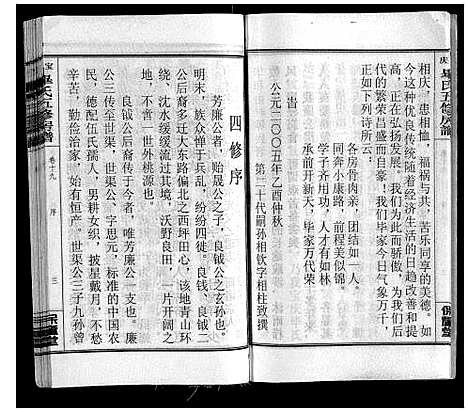 庆
畢氏五修房譜
相庆，患相恤，福祸与共，苦乐同享的美德。如
今这种优良传统随着经济生活的日趋改善和提
高，正在发扬广大，我们为此而骄傲，我们为此
繁荣昌盛而自豪！我们毕家今日气象万千，
各房骨肉亲，团结如一人。
同奔小康路，前程美似锦。
学子齐用功，人才有如林
承先启后志，毕家万代荣
公元二〇〇五年乙酉仲秋
第二十代嗣孙相钦字相柱致撰
四修序
芳廉公者，贻晟公之子，良钺公之玄孙也。
明末，族众惮于兵乱，纷纷四徒。良钱、良钺二
公后裔多迁大东路偏北之西坪田心，该地青山环
绕、沈水缓缓流过其境，沃野良田，一片开阔之
地，不啻一世外桃源也。
良钺公后裔传于今者，唯芳廉公一支也。廉
公三传至世渠，世渠公、字思元，标准的中国农
民，德配伍氏孺人，男耕女织，披星戴月，不愁
辛苦，勤俭治家，始有恒产。世渠公三子九孙曾
宝
畢氏五修房譜
卷十九
序
三